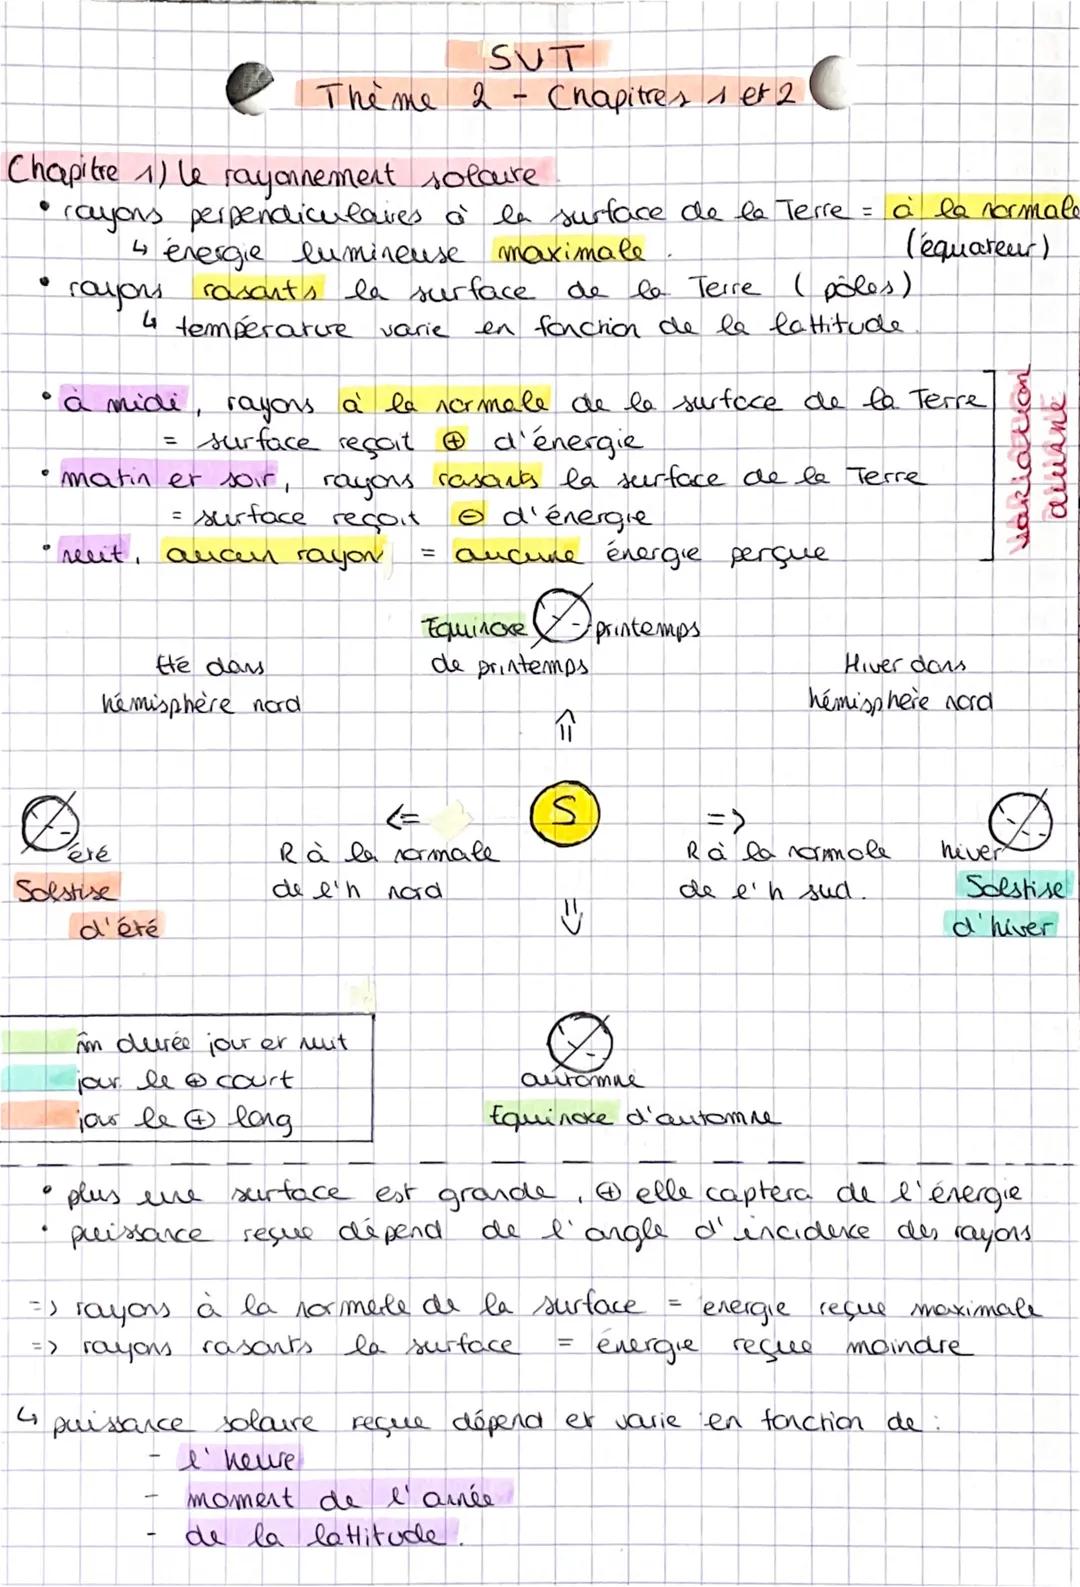 SVT
Thème 2 - Chapitres 1 et 2
Chapitre 1) le rayonnement solaire
• rayons perpendiculaires à la surface de la Terre = à la normale
↳ énergie lumineuse maximale. (équateur)
• rayons rasants la surface de la Terre (pôles)
↳ température varie en fonction de la lattitude.
• à midi, rayons à la normale de la surface de la Terre
= surface reçoit ⊕ d'énergie
• matin et soir, rayons rasants la surface de la Terre
= surface reçoit ⊖ d'énergie
• nuit, aucun rayon = aucune énergie perçue
variation
diurne
Equinoxe printemps
de printemps
Eté dans
hémisphère nord
Hiver dans
hémisphère nord
⇑
⇐ S =>
été R à la normale R à la normale hiver
Solstise de l'h nord de l'h sud. Solstise
d'été ⇓ d'hiver
m̂ durée jour et nuit
jour le ⊕ court
jour le ⊕ long
automne
Equinoxe d'automne
• plus une surface est grande, ⊕ elle captera de l'énergie
• puissance reçue dépend de l'angle d'incidence des rayons
=> rayons à la normale de la surface = énergie reçue maximale
=> rayons rasants la surface = énergie reçue moindre
↳ puissance solaire reçue dépend et varie en fonction de :
- l'heure
- moment de l'année
- de la lattitude.